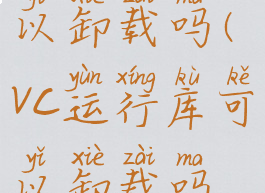 yǐ xiè zài ma
以卸载吗(
yùn xíng kù kě
VC运行库可
yǐ xiè zài ma
以卸载吗